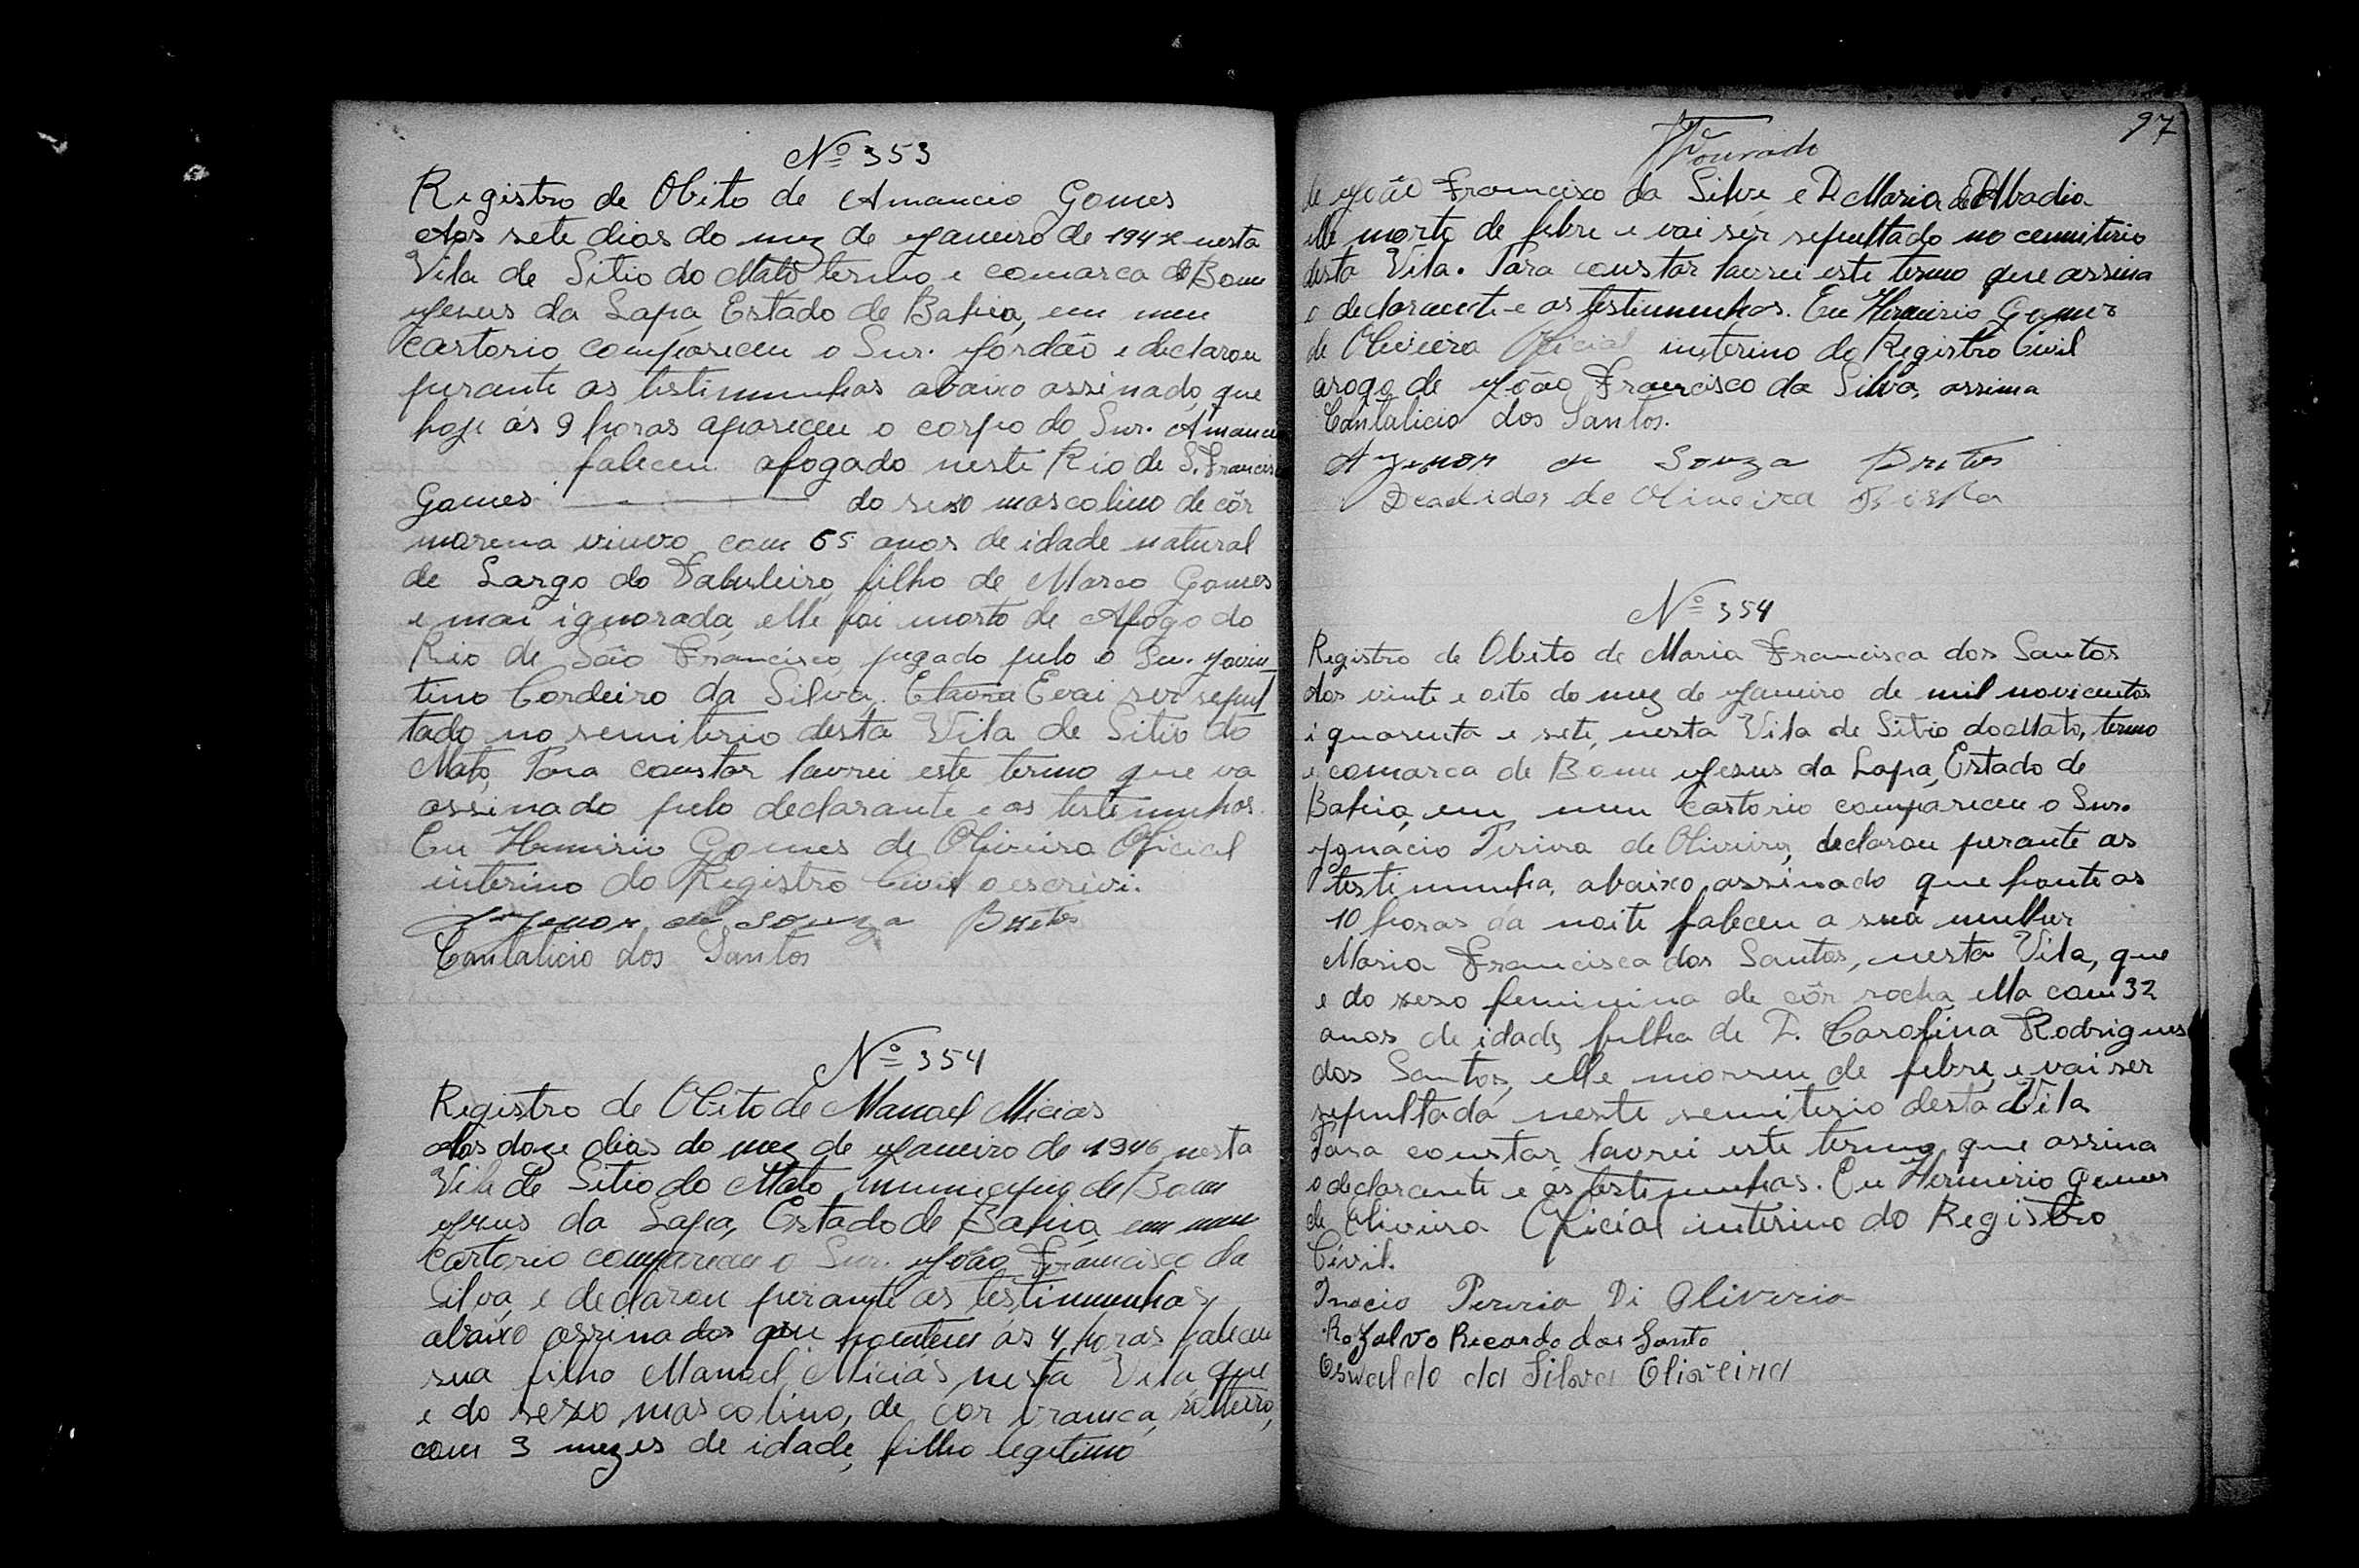 Nº 353
Registro de Obito de Amancio Gomes
Aos sete dias do mez de Janeiro de 1947 nesta
Vila de Sitio do Mato, termo e comarca de Bom
Jesus da Lapa, Estado de Bahia, em meu
Cartorio compareceu o Snr. Jordão e declarou
perante as testimunhas abaixo assinado, que
hoje ás 9 horas apareceu o corpo do Snr. Amancio
faleceu afogado neste Rio de S. Francisco
Gomes do sexo mascolino de côr
morena viuvo com 65 anos de idade natural
de Largo do Tabuleiro, filho de Marco Gomes
e mai ignorada, elle foi morto de Afogo do
Rio de São Francisco, pegado pelo o Snr. Jovin-
tino Cordeiro da Silva. E vai ser sepul
tado no semiterio desta Vila de Sitio do
Mato, Para constar lavrei este termo que va
assinado pelo declarante e as testimunhas.
Eu Hermirio Gomes de Oliveira Oficial
interino do Registro Civil o escrivi.
Agenor de Souza Brito
Cantalicio dos Santos
Nº 354
Registro de Obito de Manoel Micias
Aos doze dias do mez de Janeiro de 1946 nesta
Vila de Sitio do Mato municipio de Bom
Jesus da Lapa, Estado de Bahia em meu
Cartorio compareceu o Snr. João Francisco da
Silva e declarou perante as testimunhas
abaixo assinados que hontem ás 4 horas faleceu
sua filho Manoel Micias nesta Vila que
e do sexo mascolino, de cor branca, solteiro,
com 3 mezes de idade, filho legetimo
97
Dourado
de João Francisco da Silva e D Maria de Abadia
elle morto de febre e vai ser sepultado no cemiterio
desta Vila. Para constar lavrei este termo que assina
o declarante e as testimunhas. Eu Hermirio Gomes
de Oliveira Oficial interino do Registro Civil
arogo de João Francisco da Silva, assina
Cantalicio dos Santos.
Agenor de Souza Brito
de Oliveira
Nº 354
Registro de Obito de Maria Francisca dos Santos
Aos vinte e oito do mez de Janeiro de mil novicentos
i quarenta e sete, nesta Vila de Sitio do Mato, termo
e comarca de Bom Jesus da Lapa, Estado de
Bahia, em meu Cartorio compareceu o Snr.
Ygnácio Perira de Oliveira, declarou perante as
testimunha, abaixo assinado que honte as
10 horas da noite faleceu a sua mulher
Maria Francisca dos Santos, nesta Vila, que
e do sexo feminina de côr rocha, ella com 32
anos de idade, filha de D. Carolina Rodrigues
dos Santos, elle morreu de febre, e vai ser
sepultada neste semiterio desta Vila
Para constar lavrei este termo que assina
o declarante e as testimunhas. Eu Hermirio Gomes
de Oliveira Oficial interino do Registro
Civil.
Inacio Pereria Di Oliveria
Rozalvo Ricardo dos Santo
Oswaldo da Silva Oliveira